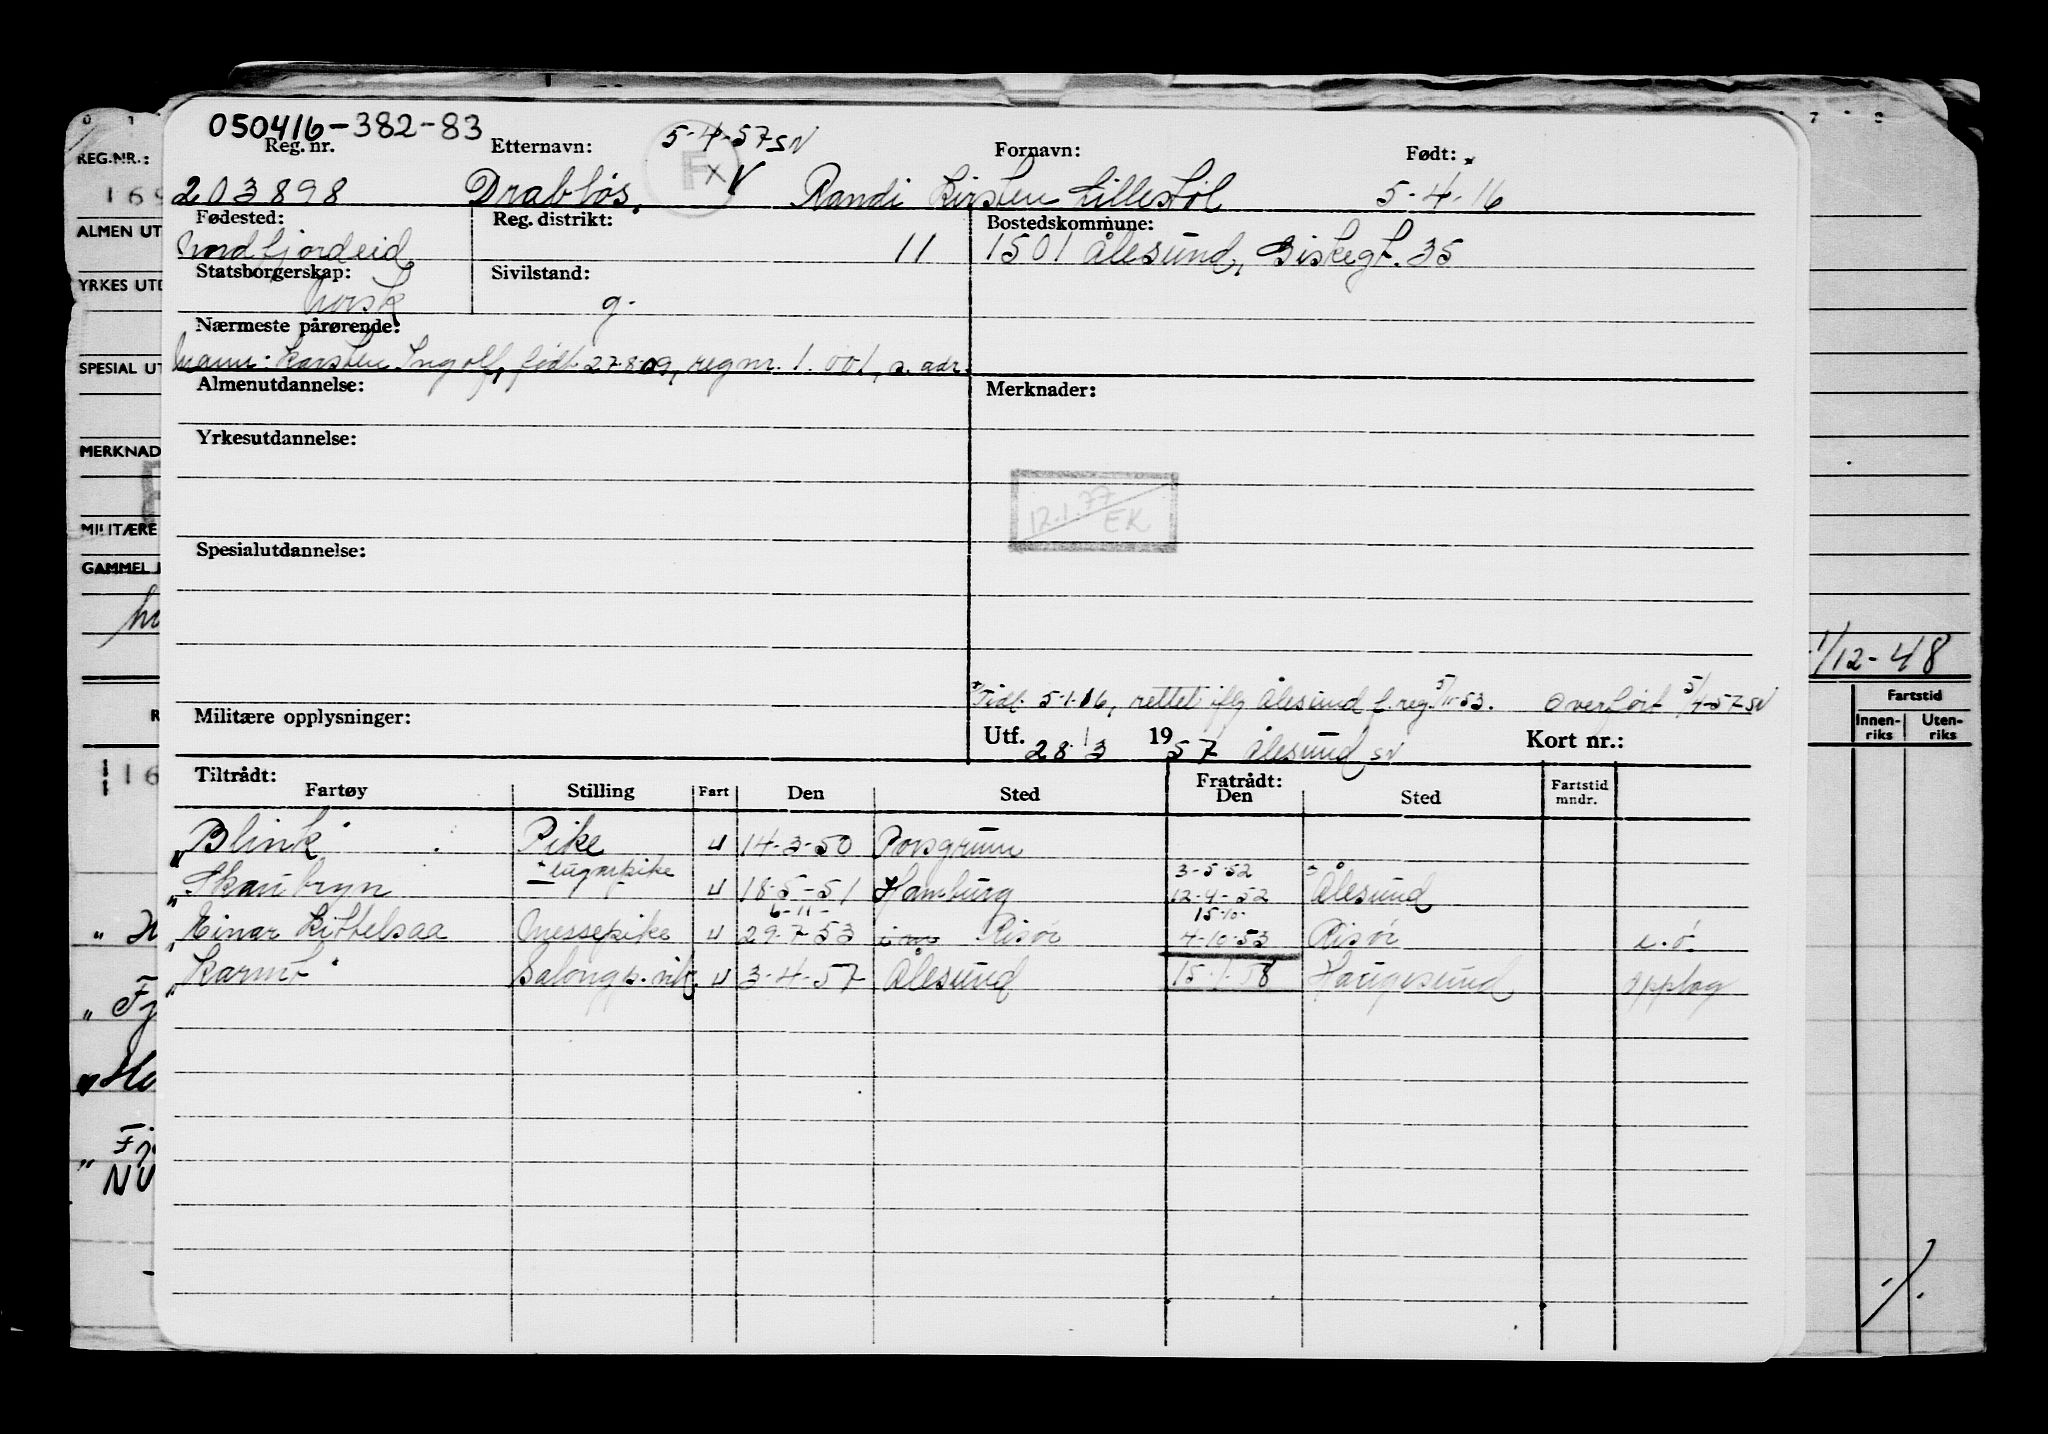 050416-382-83
5-4-57 SN
Reg. nr. Etternavn: Fornavn: Født:
203898 Drabløs. F x V Randi Kirsten Lillestøl 5-4-16
Fødested: Reg. distrikt: Bostedskommune:
Nordfjordeid 11 1501 Ålesund, Giskegt. 35
Statsborgerskap: Sivilstand:
Norsk g.
Nærmeste pårørende:
Mann: Karsten Ingolf, født 27-8-09, regnr. 1.001, s. adr.
Almenutdannelse: Merknader:
Yrkesutdannelse:
12.1.77 EK
Spesialutdannelse:
5-1-16, rettet iflg Ålesund f.reg. 5/11-53. Overført 5/4-57 SN
Militære opplysninger:
Utf. 28/3 1957 Ålesund SN Kort nr.:
Tiltrådt: Fratrådt:
Fartøy Stilling Fart Den Sted Den Sted Fartstid mndr.
"Blink" Pike U 14-3-50 Porsgrunn
lugarpike 3-5-52
"Skaubryn U 18-5-51 Hamburg 12-4-52 Ålesund
6-11- 15-10-
"Einar Kittelsaa Messepike U 29-7-53 Risør 4-10-53 Risør e.ø.
"Karmt" Salongp. U 3-4-57 Ålesund 15-1-58 Haugesund Opplag
REG.NR.:
169
ALMEN UT
YRKES UTD
SPECIAL UT
MERKNAD
MILITÆRE
GAMMEL
1/12-48
Fartstid
Innen-riks Uten-riks
16